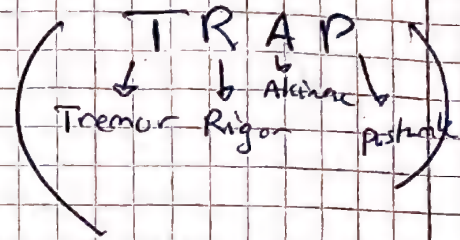 TRAP
Tremor Rigor Akinac postural